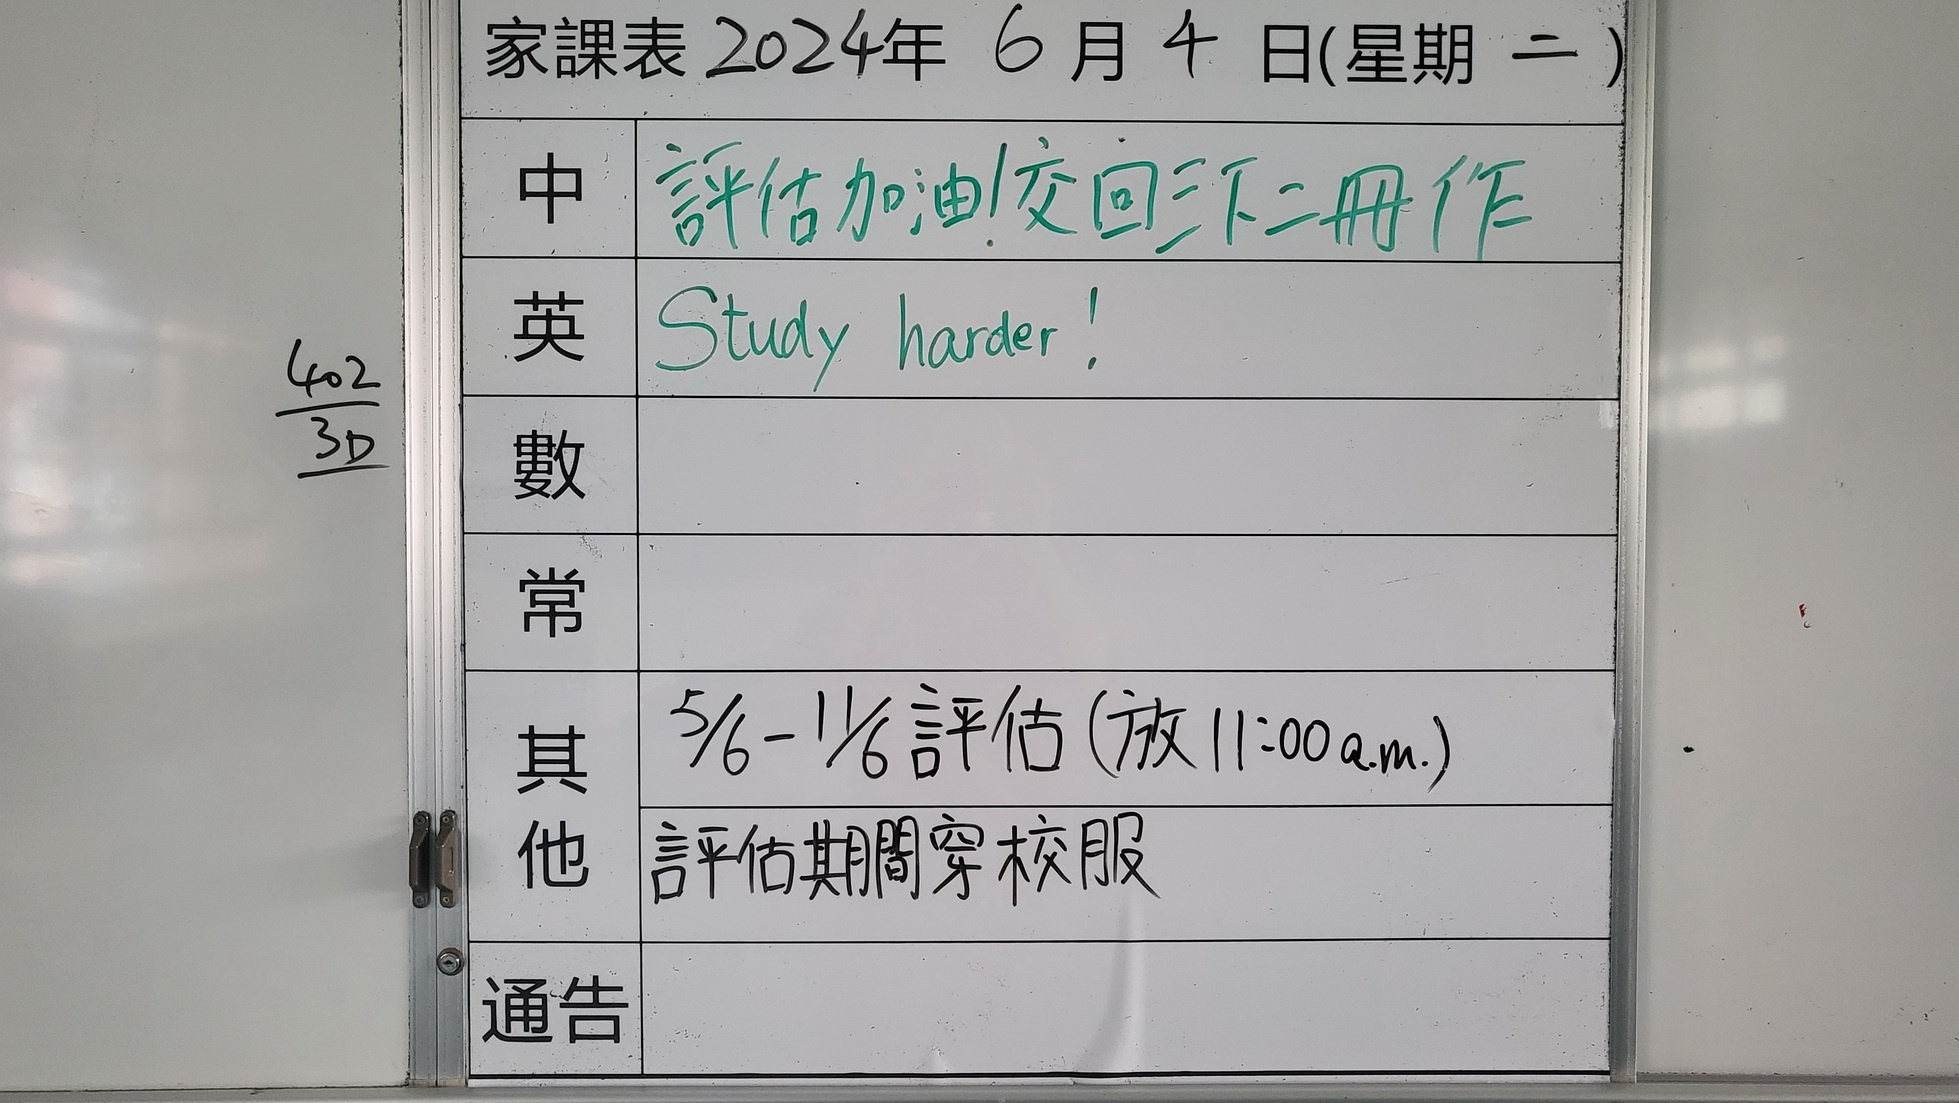 家課表 2024年 6 月 4 日(星期 二 )
中 評估加油!交回三下二冊作
英 Study harder!
402
3D
數
常
其他 5/6-11/6 評估(放 11:00 a.m.)
評估期間穿校服
通告